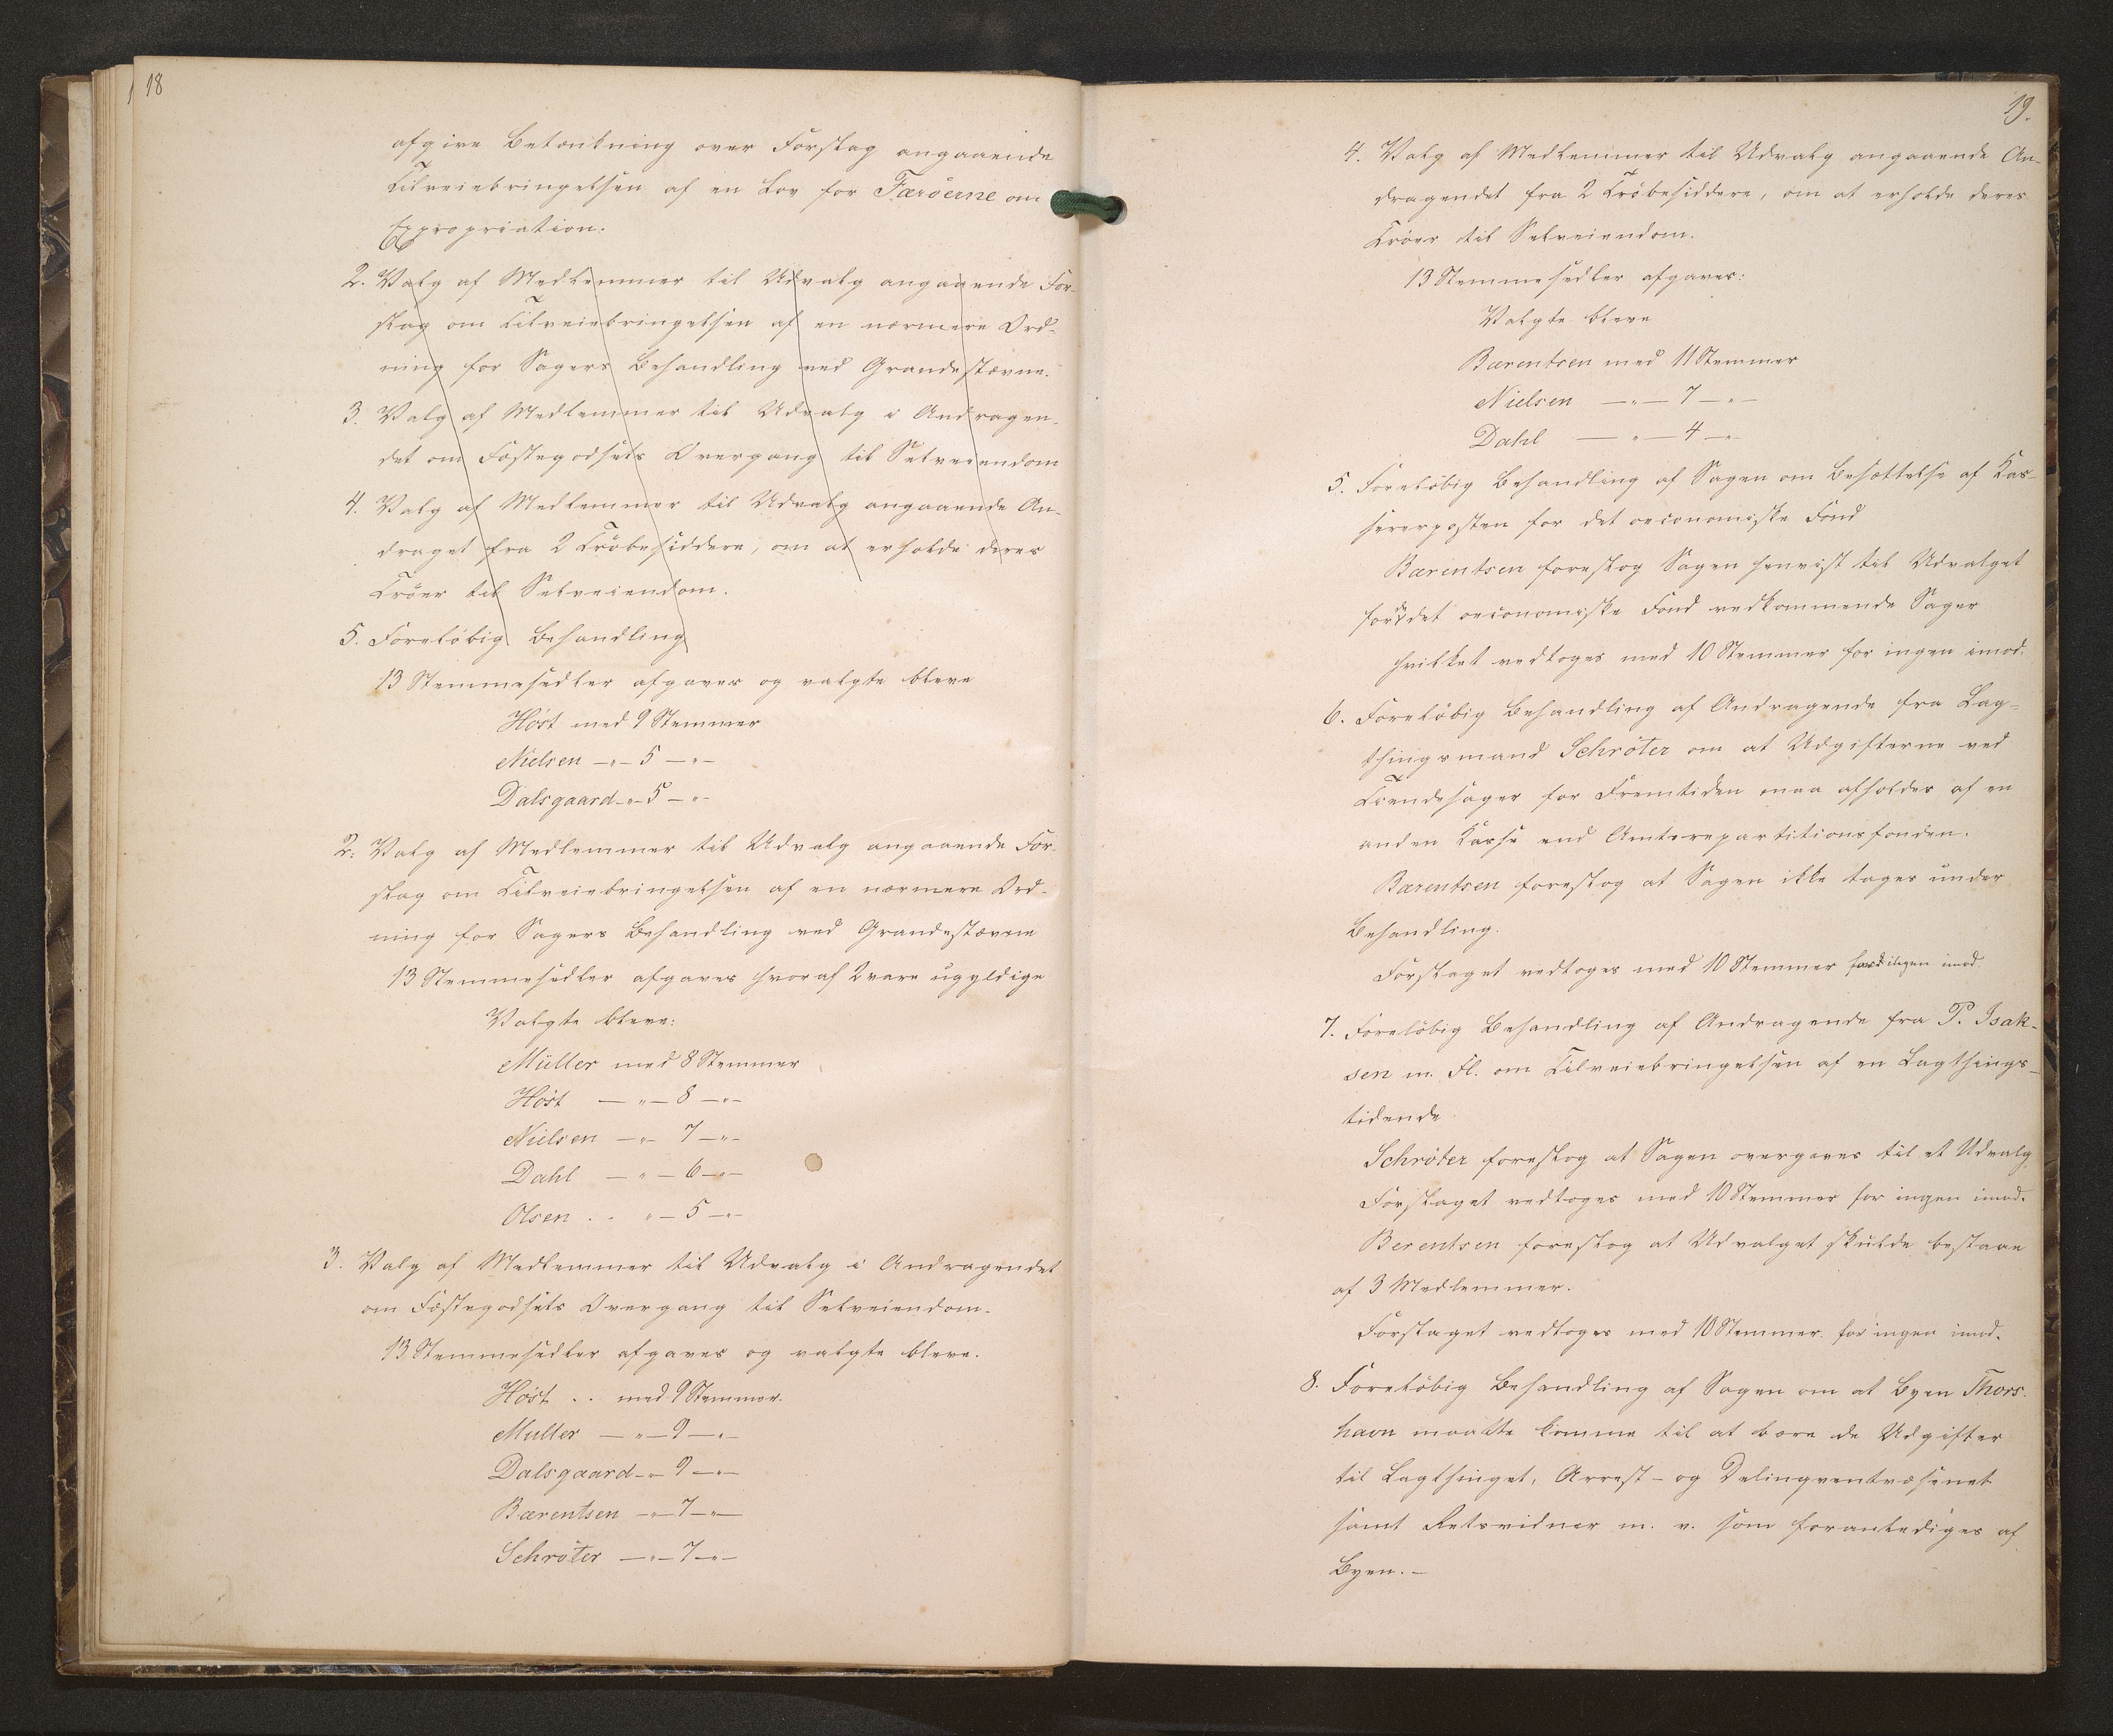 18
afgive Betænkning over Forslag angaaende
Tilveiebringelsen af en Lov for Færöerne om
Expropriation.
2. Valg af Medlemmer til Udvalg angaaende For-
slag om Tilveiebringelsen af en nærmere Ord-
ning for Sagers Behandling ved Grandestævne.
3. Valg af Medlemmer til Udvalg i Andragen-
det om Fæstegodsets Overgang til Selveiendom
4. Valg af Medlemmer til Udvalg angaaende An-
draget fra 2 Tröbesiddere, om at erholde deres
Tröer til Selveiendom.
5. Foreløbig Behandling
13 Stemmesedler afgaves og valgte bleve
Höst med 9 Stemmer
Nielsen —"— 5 —"—
Dalsgaard -"- 5 —"-
2. Valg af Medlemmer til Udvalg angaaende For-
slag om Tilveiebringelsen af en nærmere Ord-
ning for Sagers Behandling ved Grandestævne
13 Stemmesedler afgaves hvoraf 2 vare ugyldige
Valgte bleve:
Müller med 8 Stemmer
Höst — "— 8 —"—
Nielsen —"— 7 —"—
Dahl — "— 6 —"—
Olsen . . "— 5 —"—
3. Valg af Medlemmer til Udvalg i Andragendet
om Fæstegodsets Overgang til Selveiendom.
13 Stemmesedler afgaves og valgte bleve.
Höst . . med 9 Stemmer.
Müller — "— 9 —"—
Dalsgaard -"- 9 —"—
Bærentsen —"— 7 —"—
Schröter —"— 7 —"—
19.
4. Valg af Medlemmer til Udvalg angaaende An-
dragendet fra 2 Tröbesiddere, om at erholde deres
Tröer til Selveiendom.
13 Stemmesedler afgaves:
Valgte bleve
Bærentsen med 11 Stemmer
Nielsen —"— 7 —"—
Dahl — "— 4 —"-
5. Foreløbig Behandling af Sagen om Besættelse af Kas-
sererposten for det oeconomiske Fond
Bærentsen foreslog Sagen henvist til Udvalget
for de det oeconomiske Fond vedkommende Sager
hvilket vedtoges med 10 Stemmer for ingen imod.
6. Foreløbig Behandling af Andragende fra Lag-
thingsmand Schröter om at Udgifterne ved
Trendesager for Fremtiden maa afholdes af en
anden Kasse end Amtsrepartitionsfonden.
Bærentsen foreslog at Sagen ikke tages under
Behandling.
Forslaget vedtoges med 10 Stemmer ingen imod.
7. Foreløbig Behandling af Andragende fra P. Isak-
sen m. Fl. om Tilveiebringelsen af en Lagthings-
tidende
Schröter foreslog at Sagen overgaves til et Udvalg
Forslaget vedtoges med 10 Stemmer for ingen imod.
Berentsen foreslog at Udvalget skulde bestaae
af 3 Medlemmer.
Forslaget vedtoges med 10 Stemmer for ingen imod.
8. Foreløbig Behandling af Sagen om at Byen Thors-
havn maatte komme til at bære de Udgifter
til Lagthinget, Arrest- og Delinqventvæsenet
samt Retsvidner m. v. som foranlediges af
Byen. —